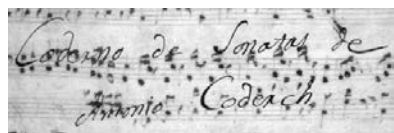 Coderno de Sonatas de
Antonio Coderch